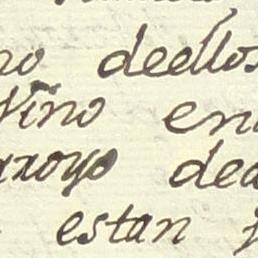 no deellos
Vino en
arroyo dea
estan